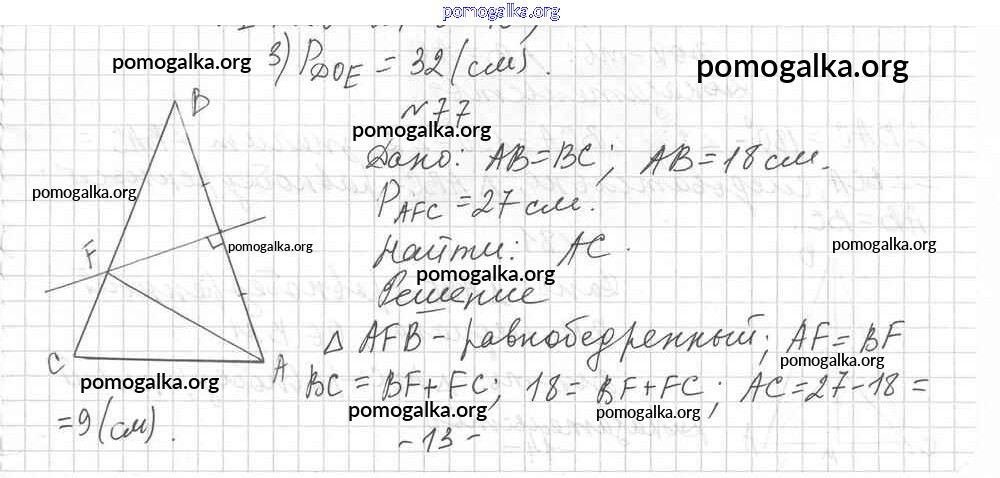 pomogalka.org
3) P_DOE = 32 (см).
pomogalka.org
pomogalka.org
№77
pomogalka.org
B
Дано: AB = BC; AB = 18 см.
pomogalka.org
P_AFC = 27 см.
F
pomogalka.org
Найти: AC.
pomogalka.org
pomogalka.org
Решение
Δ AFB - равнобедренный; AF = BF
pomogalka.org
C
A
pomogalka.org
BC = BF + FC; 18 = BF + FC; AC = 27 - 18 =
pomogalka.org
pomogalka.org
= 9 (см).
- 13 -